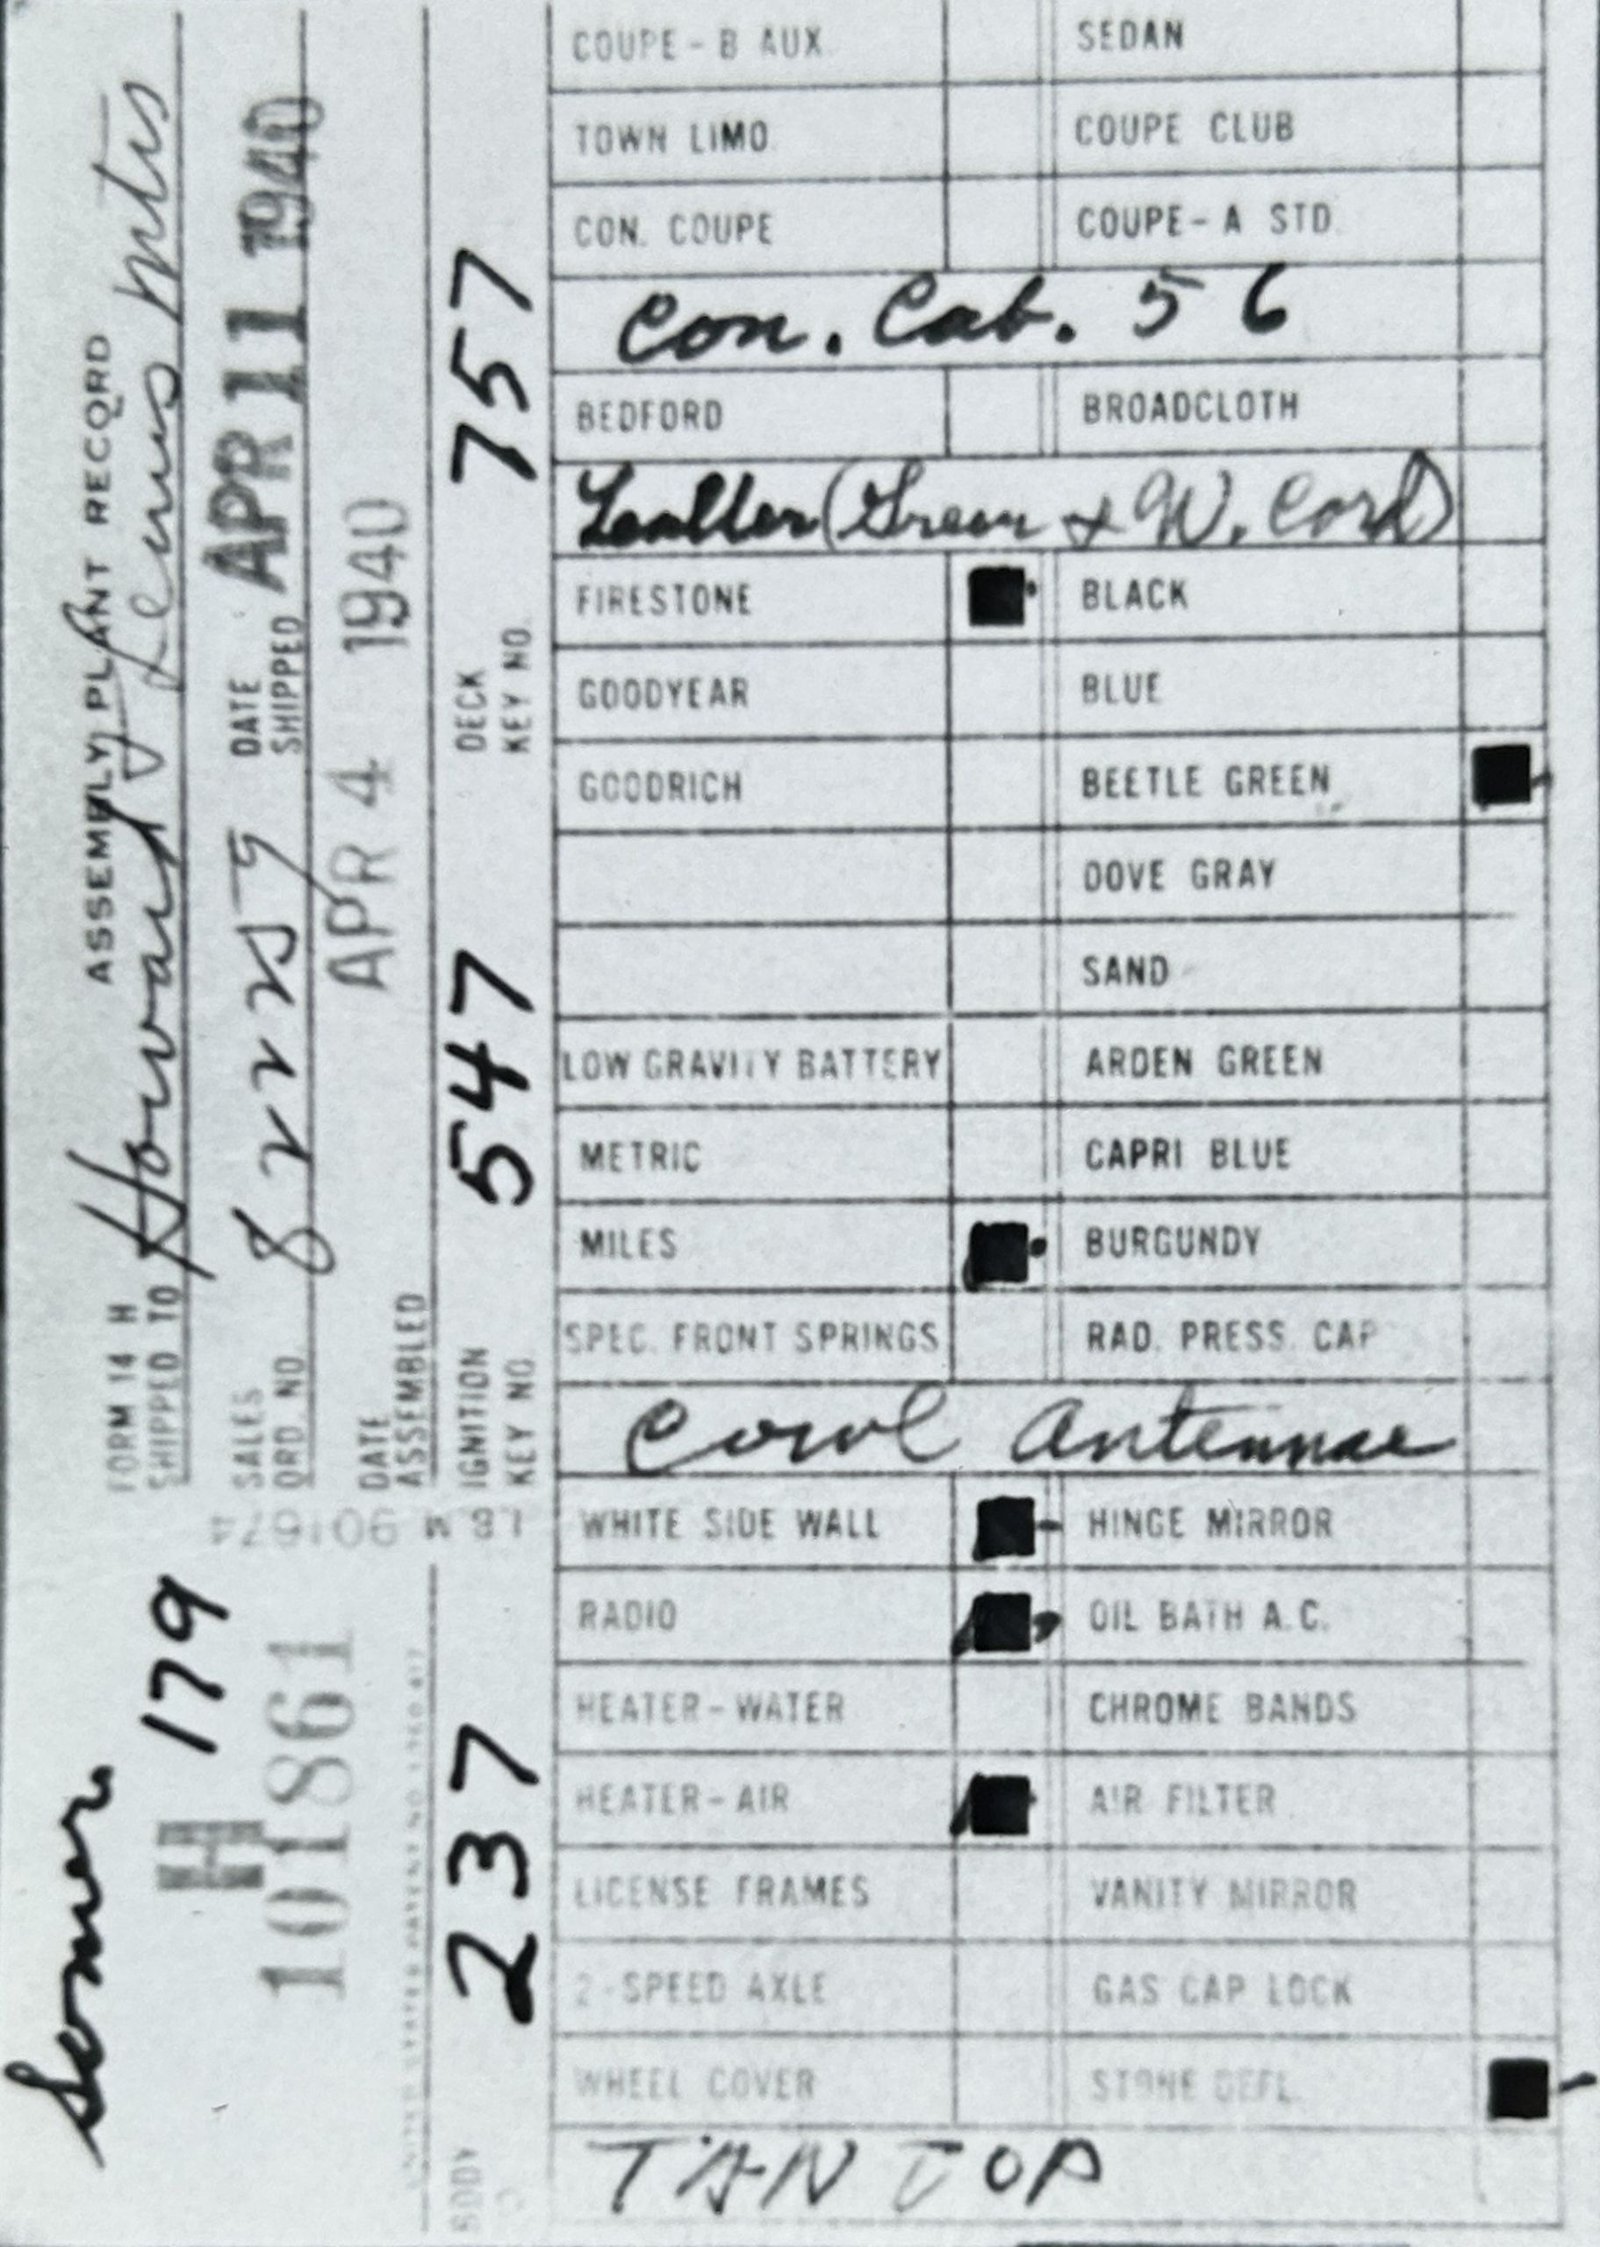 ASSEMBLY PLANT RECORD
FORM 14 H
SHIPPED TO Howard
SALES ORD. NO. 8225
DATE SHIPPED APR 11 1940
DATE ASSEMBLED APR 4 1940
IGNITION KEY NO. 547
DECK KEY NO. 757
179
H
101861
BODY 237
COUPE-B AUX. SEDAN
TOWN LIMO. COUPE CLUB
CON. COUPE COUPE-A STD.
Con. Cab. 56
BEDFORD BROADCLOTH
Leather (Green & W. Cord)
FIRESTONE BLACK
GOODYEAR BLUE
GOODRICH BEETLE GREEN
DOVE GRAY
SAND
LOW GRAVITY BATTERY ARDEN GREEN
METRIC CAPRI BLUE
MILES BURGUNDY
SPEC. FRONT SPRINGS RAD. PRESS. CAP
Cowl Antennae
WHITE SIDE WALL HINGE MIRROR
RADIO OIL BATH A.C.
HEATER-WATER CHROME BANDS
HEATER-AIR AIR FILTER
LICENSE FRAMES VANITY MIRROR
2-SPEED AXLE GAS CAP LOCK
WHEEL COVER STONE DEFL.
TAN TOP